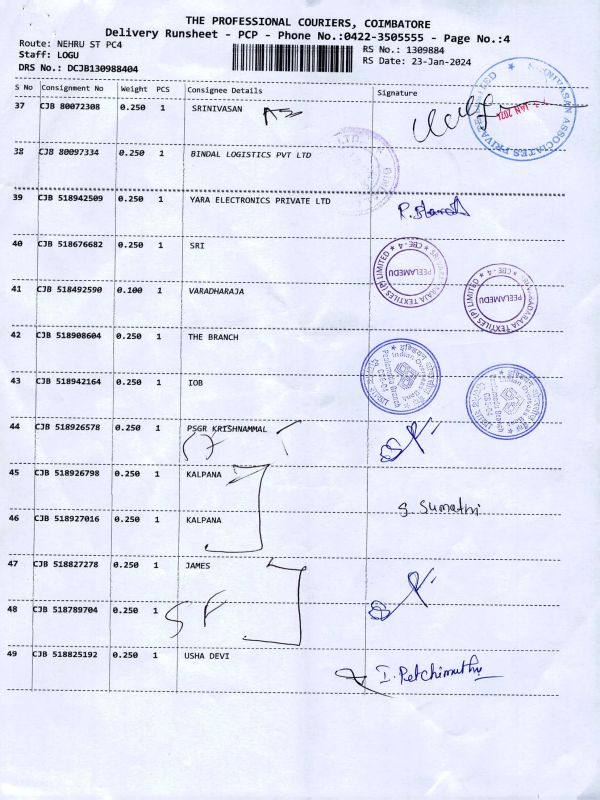 THE PROFESSIONAL COURIERS, COIMBATORE
Delivery Runsheet - PCP - Phone No.:0422-3505555 - Page No.:4
Route: NEHRU ST PC4
Staff: LOGU
DRS No.: DCJB130988404
RS No.: 1309884
RS Date: 23-Jan-2024
S No Consignment No Weight PCS Consignee Details Signature
37 CJB 80072308 0.250 1 SRINIVASAN
SRINIVASAN ASSOCIATES PRIVATE LIMITED
38 CJB 80097334 0.250 1 BINDAL LOGISTICS PVT LTD
39 CJB 518942509 0.250 1 YARA ELECTRONICS PRIVATE LTD
40 CJB 518676682 0.250 1 SRI
SRI VARADARAJA TEXTILES (P) LIMITED ★ CBE-4 ★
PEELAMEDU
41 CJB 518492590 0.100 1 VARADHARAJA
SRI VARADARAJA TEXTILES (P) LIMITED ★ CBE-4 ★
PEELAMEDU
42 CJB 518908604 0.250 1 THE BRANCH
Indian Overseas Bank
43 CJB 518942164 0.250 1 IOB
44 CJB 518926578 0.250 1 PSGR KRISHNAMMAL
45 CJB 518926798 0.250 1 KALPANA
S. Sumathi
46 CJB 518927016 0.250 1 KALPANA
47 CJB 518827278 0.250 1 JAMES
48 CJB 518789704 0.250 1
49 CJB 518825192 0.250 1 USHA DEVI
I. Petchimuthu